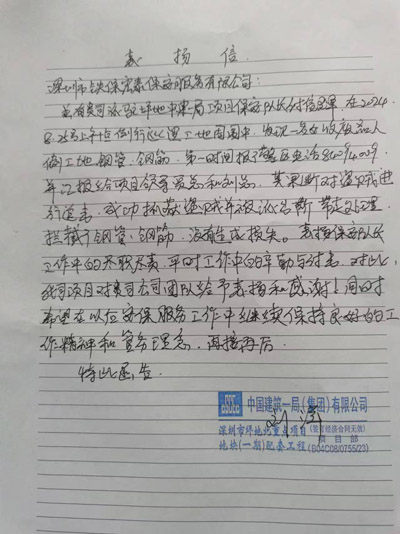 表扬信
深圳市铁保宏泰保安服务有限公司:
兹有贵司派驻坪地中建一局项目保安队长付,在2024
8.上午恒例行巡逻工地周围中,发现一名收废品人
偷工地钢管、钢筋,第一时间报警
并汇报给项目领导和刘总,其果断对盗贼进
行追击,成功抓获盗贼并被派出所带走处理,
拦截下钢管、钢筋,没有造成损失。表扬保安队长
工作中的尽职尽责,平时工作中的辛勤与付出,对此,
我司项目对贵司公司团队给予表扬和感谢!同时
希望在以后安保服务工作中继续保持良好的工
作精神和服务理念,再接再厉。
特此函告。
中国建筑一局(集团)有限公司
深圳市坪地北重点项目(签订经济合同无效)
地块(一期)配套工程
项目部
(B04C08/0755/23)